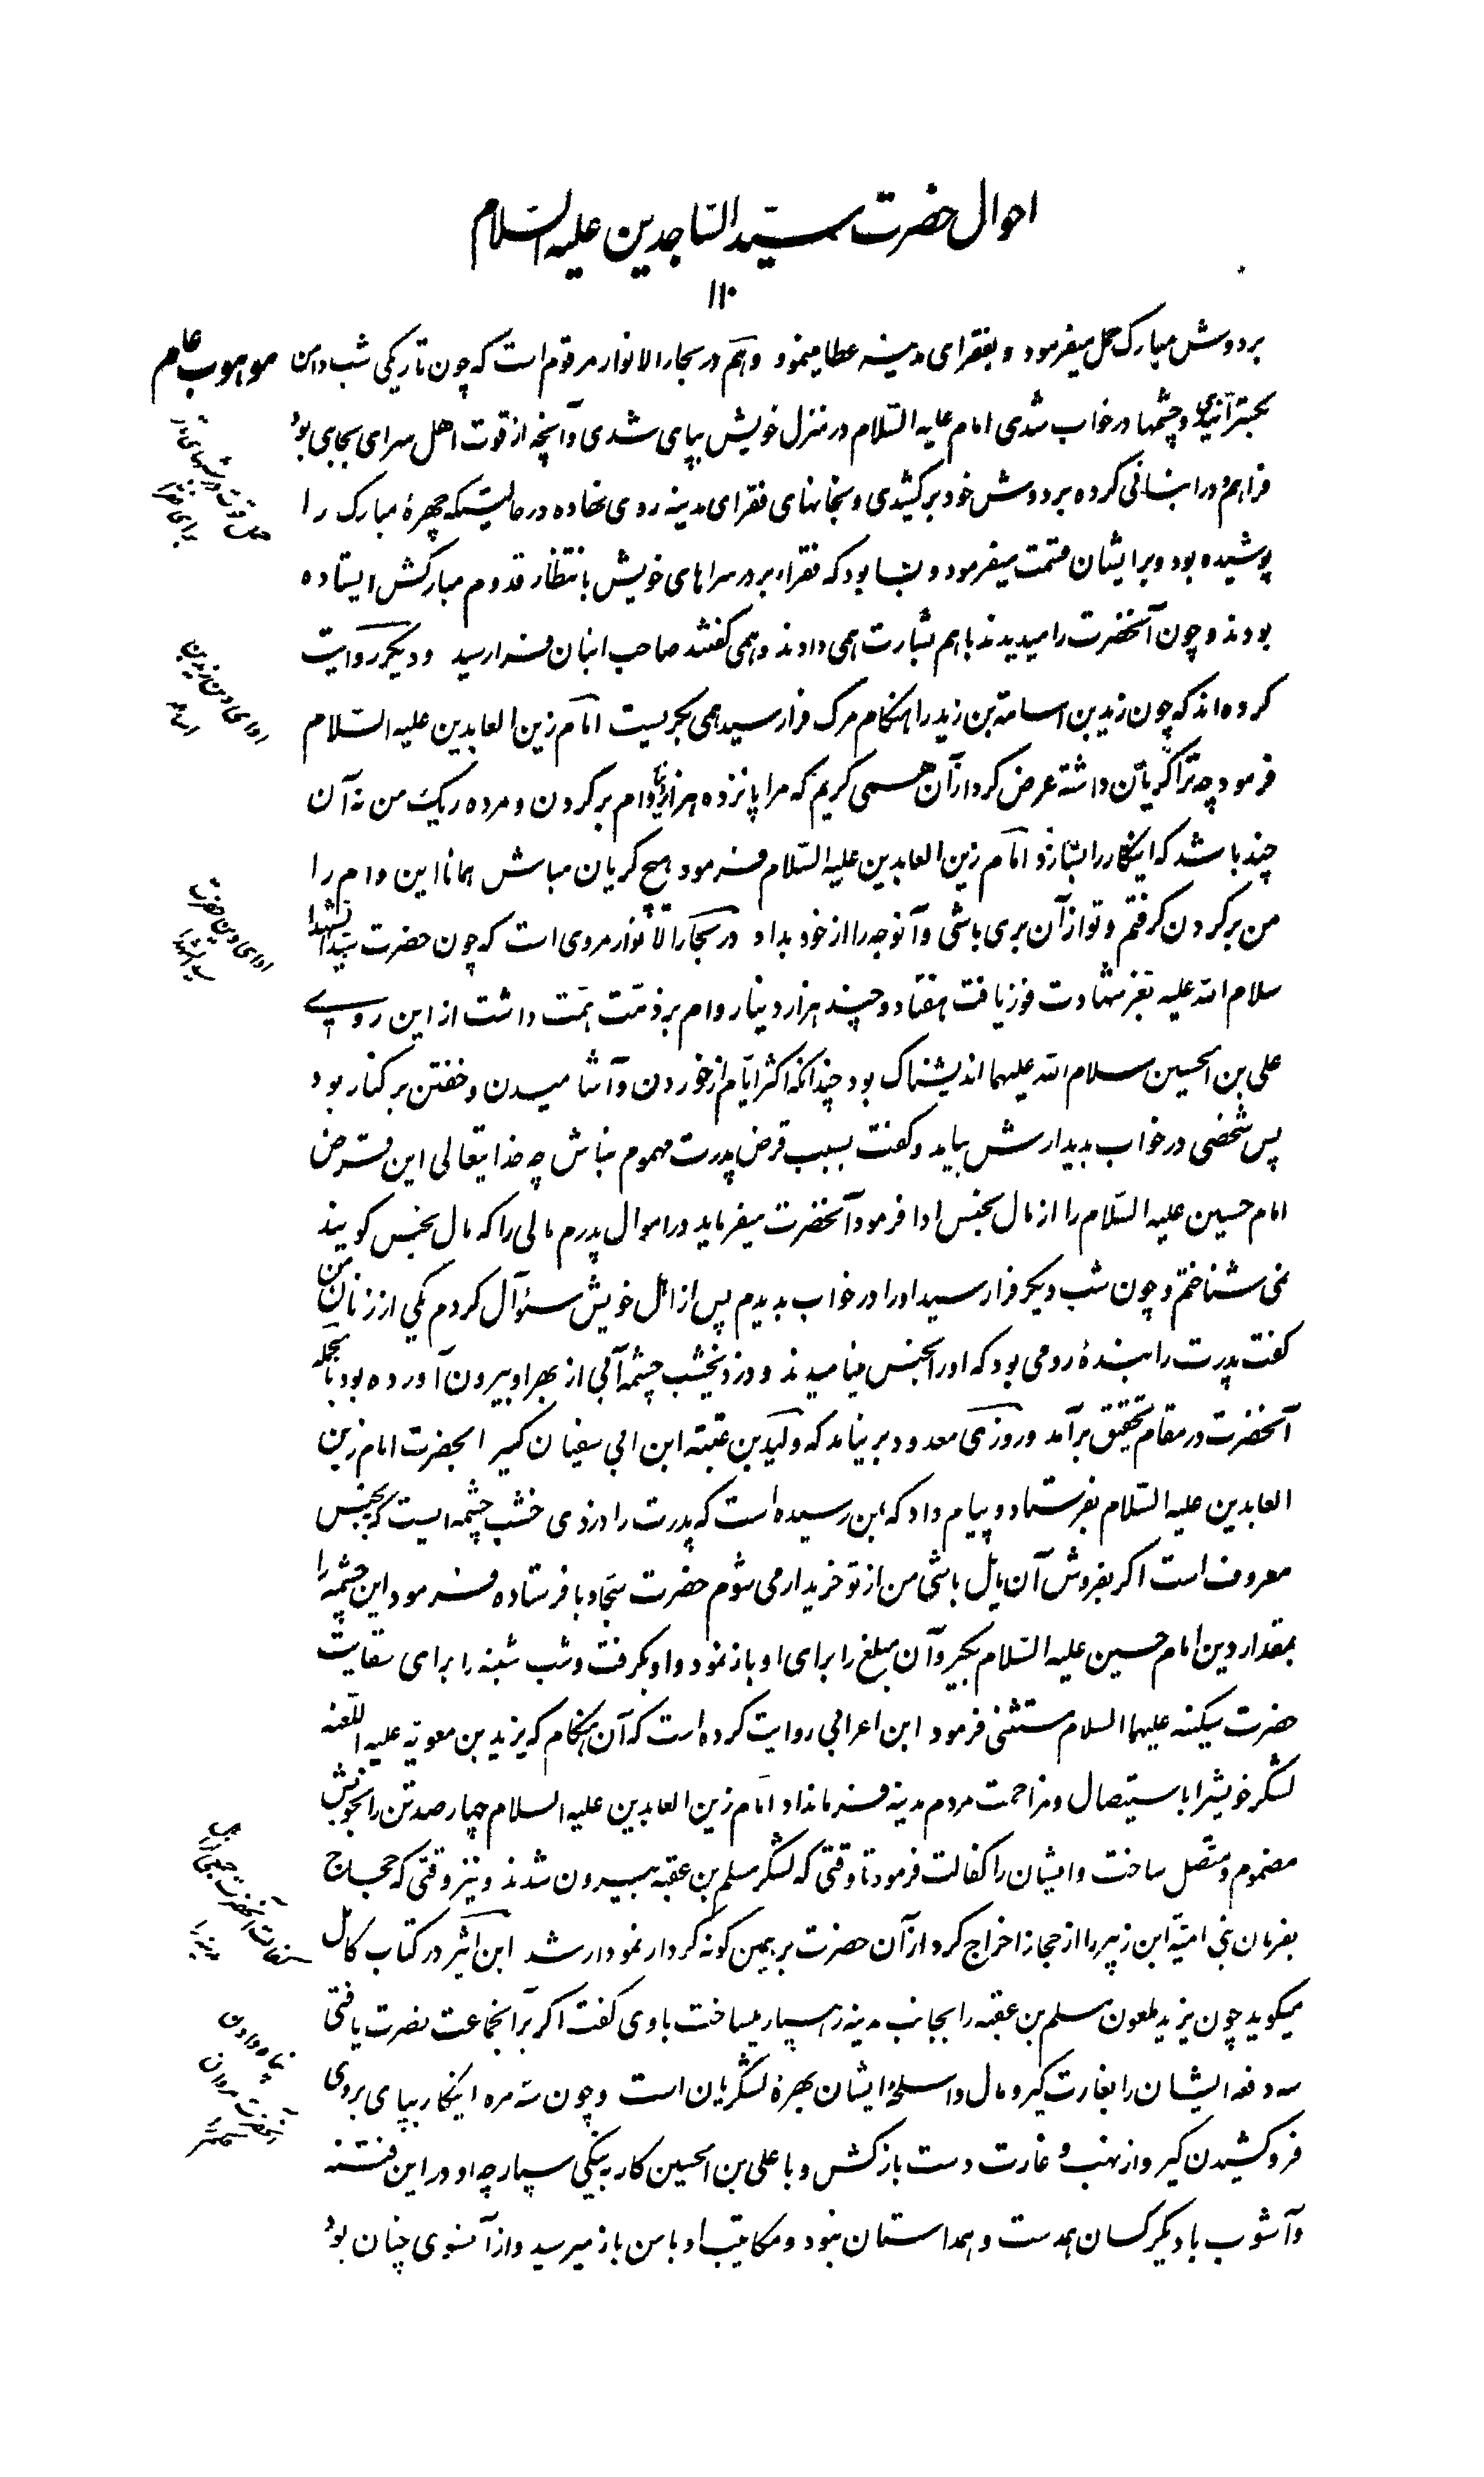 احوال حضرت سیّد السّاجدین علیه السّلام
۱۱۰
بردوش مبارک حمل میفرمود و بفقرای مدینه عطا مینمود و هم در بحار الانوار مرقوم است که چون تاریکی شب دامن
موهوب عام
بگسترانیدی و چشمها در خواب شدی امام علیه السّلام در منزل خویش بپای شدی و آنچه از قوت اهل سرای بجای بود
فراهم و در انبانی کرده بردوش خود برکشیدی و بخانهای فقرای مدینه روی نهاده در حالیتکه چهرهٔ مبارک را
پوشیده بود و برایشان قسمت میفرمود و بسا بود که فقراء بر در سراهای خویش بانتظار قدوم مبارکش ایستاده
بودند و چون آنحضرت را میدیدند با هم بشارت همی دادند و همی گفتند صاحب انبان فرارسید و دیگر روایت
کرده‌اند که چون زید بن اسامة بن زید را هنگام مرگ فرارسید همی بگریست امام زین العابدین علیه السّلام
فرمود چه ترا گریان داشته عرض کرد از آن همی گریم که مرا پانزده هزار دینار وام برگردن و مرده ریک من نه آن
چند باشد که اینکار را بسازد امام زین العابدین علیه السّلام فرمود هیچ گریان مباش همانا این وام را
من برگردن گرفتم و تو از آن بری باشی و آنوجه را از خود بداد در بحار الانوار مروی است که چون حضرت سیّد الشهدا
سلام الله علیه بعز شهادت فوز یافت هفتاد و چند هزار دینار وام بر ذمّت همّت داشت از این روی
علی بن الحسین سلام الله علیهما اندیشناک بود چندانکه اکثر ایّام از خوردن و آشامیدن و خفتن برکنار بود
پس شخصی در خواب بدیدارش بیامد و گفت بسبب قرض پدرت مهموم مباش چه خدایتعالی این قرض
امام حسین علیه السّلام را از مال بجنس ادا فرمود آنحضرت میفرماید در اموال پدرم مالی را که مال بجنس گویند
نمی شناختم و چون شب دیگر فرارسید او را در خواب بدیدم پس از اهل خویش سئوال کردم یکی از زنان من
گفت پدرت را بندهٔ رومی بود که او را بجنس مینامیدند و در ذیخشب چشمه آبی از بهر او بیرون آورده بود بالجمله
آنحضرت در مقام تحقیق برآمد و روزی معدود برنیامد که ولید بن عتبة ابن ابی سفیان کسی بحضرت امام زین
العابدین علیه السّلام بفرستاد و پیام داد که بمن رسیده است که پدرت را در ذی خشب چشمه ایست که ببجنس
معروف است اگر بفروش آن مایل باشی من از تو خریدار می شوم حضرت سجّاد با فرستاده فرمود این چشمه را
بمقدار دین امام حسین علیه السّلام بگیر و آن مبلغ را برای او باز نمود و او بگرفت و شب شنبه را برای سقایت
حضرت سکینه علیهما السلام مستثنی فرمود ابن اعرابی روایت کرده است که آن هنگام که یزید بن معویة علیه اللّعنه
لشکر خویشرا باستیصال و مزاحمت مردم مدینه فرمانداد امام زین العابدین علیه السلام چهار صد تن را بخویش
مضموم و متّصل ساخت و ایشان را کفالت فرمود تا وقتی که لشکر مسلم بن عقبه بیرون شدند و نیز وقتی که حجاج
بفرمان بنی امیّه ابن زبیر را از حجاز اخراج کرد از آن حضرت بر همین گونه کردار نمودار شد ابن اثیر در کتاب کامل
میگوید چون یزید ملعون مسلم بن عقبه را بجانب مدینه رهسپار میساخت با وی گفت اگر بر آنجماعت نصرت یافتی
سه دفعه ایشان را بغارت گیر و مال و اسلحهٔ ایشان بهرهٔ لشکریان است و چون سه مره اینکار بپای بردی
فروکشیدن گیر و از نهب و غارت دست بازکش و با علی بن الحسین کار به نیکی سپار چه او در این فتنه
و آشوب با دیگر کسان همدست و همداستان نبود و مکاتیب او با من باز میرسید و از آنسوی چنان بود
ادای دین زید بن اسامه
ادای دین حضرت سید الشهدا
پناه دادن آنحضرت مروان